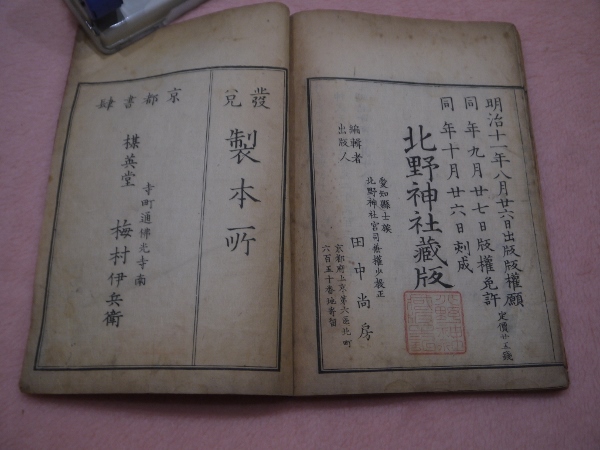 明治十一年八月廿六日出版版權願
同年九月廿七日版權免許
定價廿五錢
同年十月廿六日刺成
北野神社藏版
編輯者
出版人
愛知縣士族
北野神社宮司兼權少教正
田中尚房
京都府上京第六區北町
六百五十番地寄留
發兌
製本所
京都書肆
寺町通佛光寺南
楳英堂 梅村伊兵衛